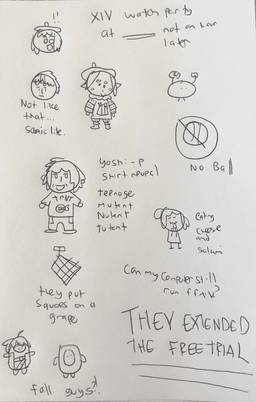 !!
XIV watch party
at ____ not on here
later
Not like
that...
Sonic like.
NO Ball
Yoshi-P
shirt reveal
teenage
mutant
Nutant
Tutant
TMNT
eating
cheese
and
salami
they put
squares on a
grape
Can my computer still
run ffxiv?
THEY EXTENDED
THE FREE TRIAL
fall guys?